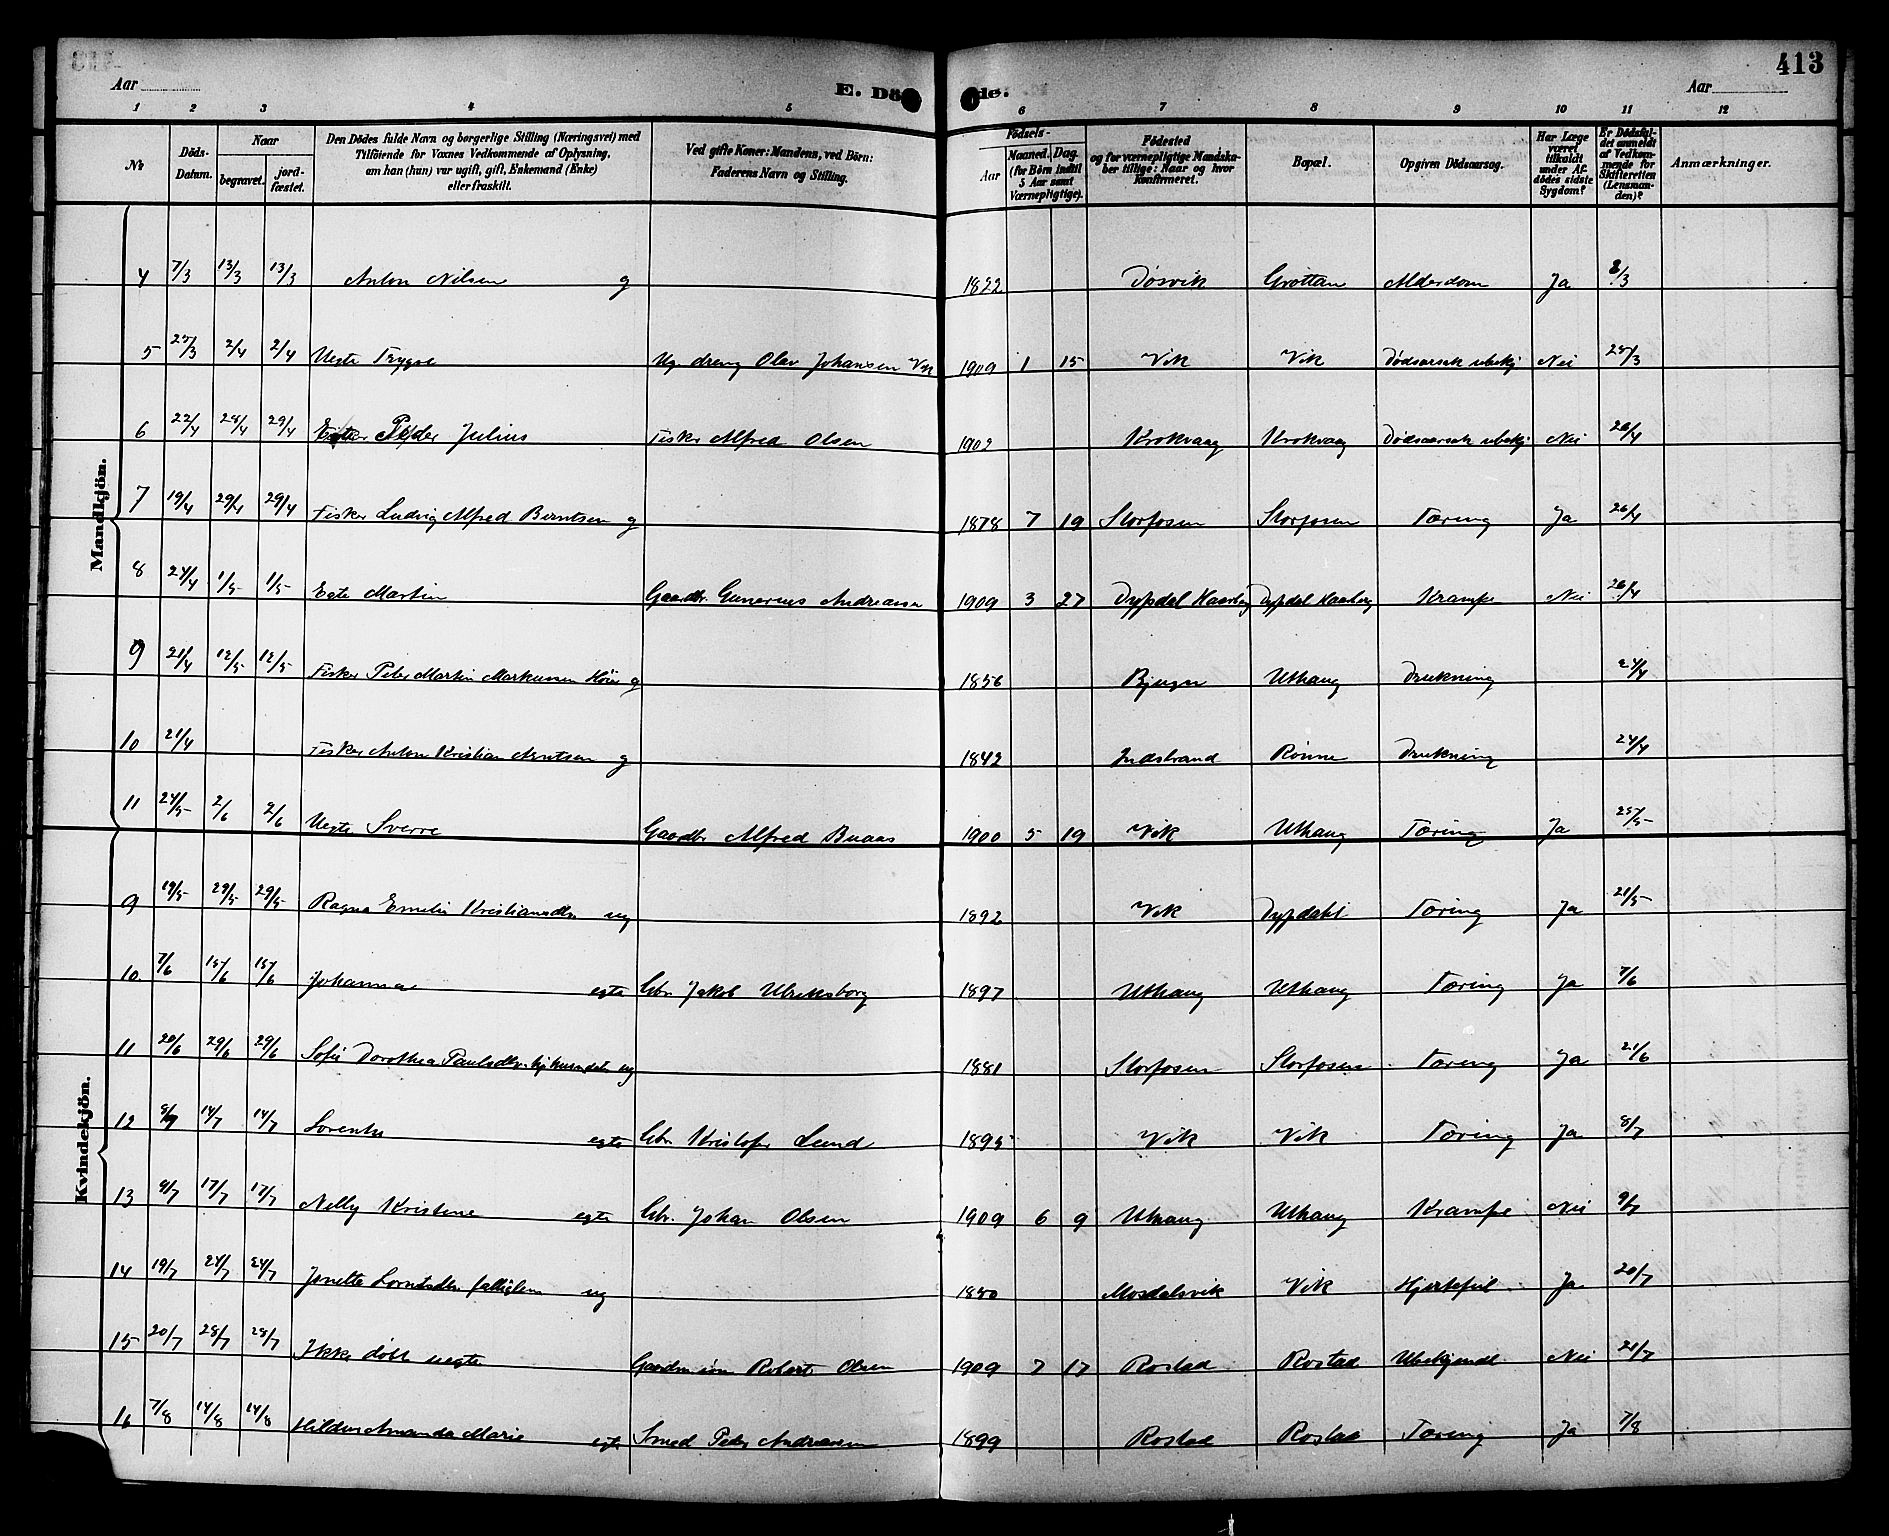 413
Aar
E. Döde.
Aar
1 2 3 4 5 6 7 8 9 10 11 12
No
Döds-Datum.
Naar
begravet.
jordfæstet.
Den Dödes fulde Navn og borgerlige Stilling (Næringsvei) med Tilföiende for Voxnes Vedkommende af Oplysning, om han (hun) var ugift, gift, Enkemand (Enke) eller fraskilt.
Ved gifte Koner: Mandens, ved Börn: Faderens Navn og Stilling.
Födsels-
Aar
Maaned. Dag.
(for Börn indtil 5 Aar samt Værnepligtige).
Födested og for værnepligtige Mandskaber tillige: Naar og hvor Konfirmeret.
Bopæl.
Opgiven Dödsaarsag.
Har Læge været tilkaldt under Afdödes sidste Sygdom?
Er Dödsfaldet anmeldt af Vedkommende for Skifteretten (Lensmanden)?
Anmærkninger.
Mandkjön.
4 7/3 13/3 13/3 Anton Nilsen g 1822 Døsvik Grøttan Alderdom Ja 8/3
5 25/3 2/4 2/4 Uegte Trygve Ug. dreng Olav Johansen Vik 1909 1 15 Vik Vik Dødsaarsak ubekj Nei 25/3
6 22/4 29/4 29/4 Peder Julius Fisker Alfred Olsen 1902 Krokvaag Krokvaag Dødsaarsak ubekj Nei 26/4
7 19/4 29/4 29/4 Fisker Ludvig Alfred Berntsen g 1878 7 19 Storfosen Storfosen Tæring Ja 26/4
8 24/4 1/5 1/5 Egte Martin Gaardbr. Gunerius Andreasen 1909 3 27 Dypdal Haarberg Dypdal Haarberg Krampe Nei 26/4
9 21/4 12/5 12/5 Fisker Peter Martin Markussen Høie g 1856 Bjugn Uthaug Drukning 24/4
10 21/4 Fisker Anton Kristian Arntsen g 1842 Indstrand Rønne Drukning 24/4
11 24/5 2/6 2/6 Uegte Sverre Gaardbr Alfred Buaas 1900 5 19 Vik Uthaug Tæring Ja 25/5
Kvindekjön.
9 19/5 29/5 29/5 Ragna Emelie Kristiansdtr ug 1892 Vik Dypdahl Tæring Ja 21/5
10 7/6 15/6 15/6 Johanna egte Gbr. Jakob Ulriksborg 1897 Uthaug Uthaug Tæring Ja 7/6
11 20/6 29/6 29/6 Sofie Dorothea Paulsdtr. ug 1881 Storfosen Storfosen Tæring Ja 21/6
12 8/7 14/7 14/7 Lorentse egte Gbr. Kristofer Lund 1895 Vik Vik Tæring Ja 8/7
13 9/7 17/7 17/7 Nelly Kristine egte Gbr. Johan Olsen 1909 6 9 Uthaug Uthaug Krampe Nei 9/7
14 19/7 24/7 24/7 Jonette Lorntsdtr fattiglem ug 1850 Mosdalsvik Vik Hjertefeil Ja 20/7
15 20/7 28/7 28/7 Ikke døbt uegte Gaardm. søn Robert Olsen 1909 7 17 Rostad Rostad Ubekjendt Nei 21/7
16 7/8 14/8 14/8 Hildur Amanda Marie egte Smed Peter Andreasen 1899 Rostad Rostad Tæring Ja 7/8